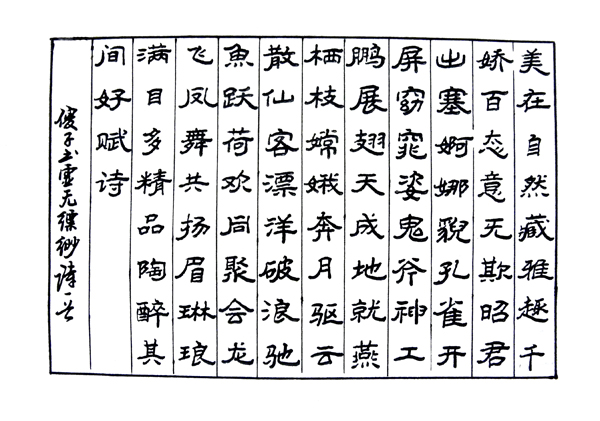 美在自然藏雅趣千
娇百态意无欺昭君
出塞婀娜貌孔雀开
屏窈窕姿鬼斧神工
鹏展翅天成地就燕
栖枝嫦娥奔月驱云
散仙客漂洋破浪驰
魚跃荷欢同聚会龙
飞凤舞共扬眉琳琅
满目多精品陶醉其
间好赋诗
傻子书虚无缥缈诗一首